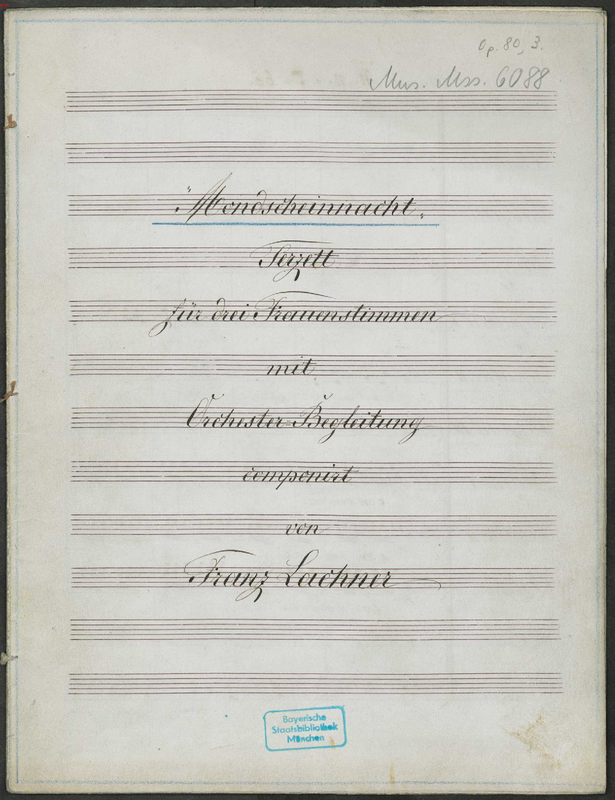 Op. 80, 3.
Mus. Mss. 6088
"Mondscheinnacht"
Terzett
für drei Frauenstimmen
mit
Orchester-Begleitung
componirt
von
Franz Lachner
Bayerische
Staatsbibliothek
München